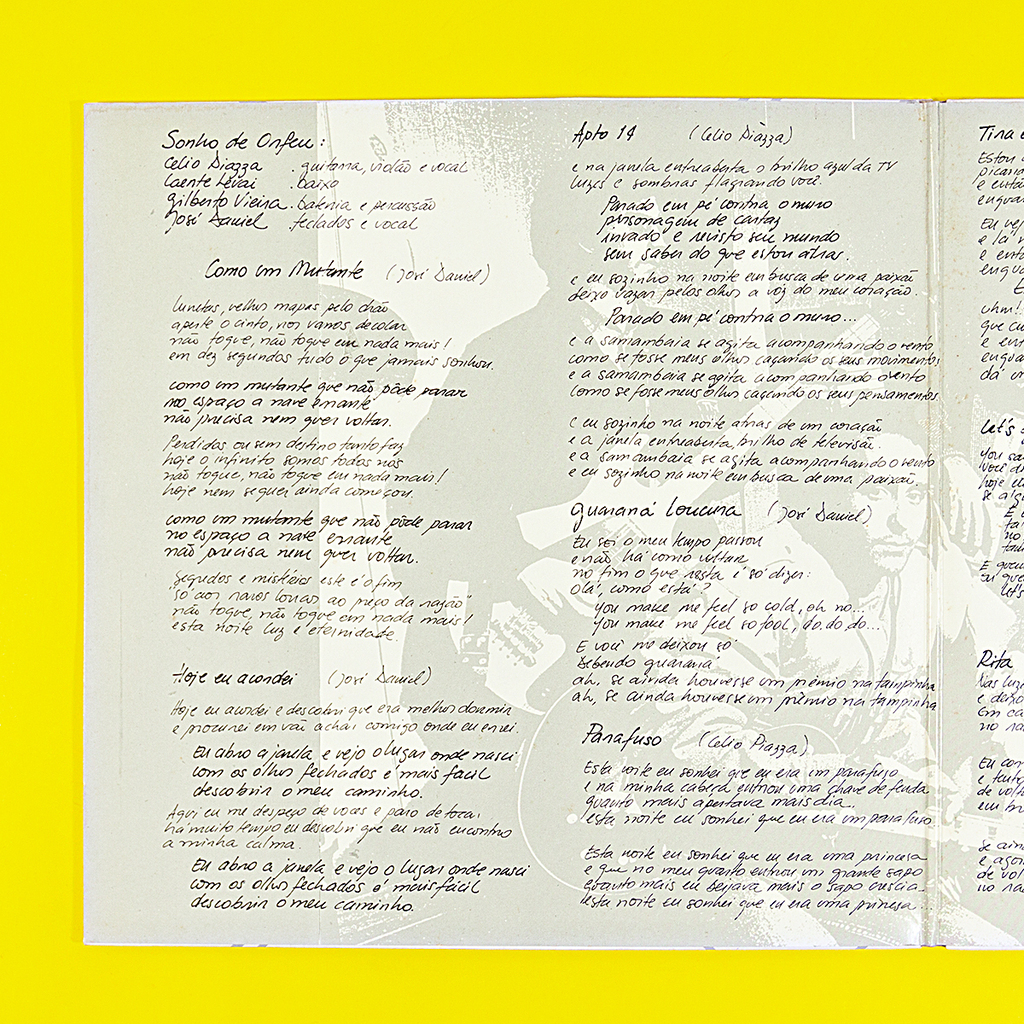 Sonho de Orfeu:
Celio Piazza . guitarra, violão e vocal
Laente Levai . baixo
Gilberto Vieira . bateria e percussão
José Daniel . teclados e vocal
Como um Mutante (José Daniel)
lunetas, velhos mapas pelo chão
aperte o cinto, nós vamos decolar
não toque, não toque em nada mais!
em dez segundos tudo o que jamais sonhou.
como um mutante que não pôde parar
no espaço a nave errante
não precisa nem quer voltar.
Perdidos ou sem destino tanto faz
hoje o infinito somos todos nós
não toque, não toque em nada mais!
hoje nem sequer ainda começou.
como um mutante que não pôde parar
no espaço a nave errante
não precisa nem quer voltar.
Segredos e mistérios este é o fim
"só aos raros loucos ao preço da razão"
não toque, não toque em nada mais!
esta noite luz e eternidade.
Hoje eu acordei (José Daniel)
Hoje eu acordei e descobri que era melhor dormir
e procurei em vão achar comigo onde eu errei.
Eu abro a janela e vejo o lugar onde nasci
com os olhos fechados é mais facil
descobrir o meu caminho.
Aqui eu me despeço de voces e paro de tocar
há muito tempo eu descobri que eu não encontro
a minha calma.
Eu abro a janela e vejo o lugar onde nasci
com os olhos fechados é mais fácil
descobrir o meu caminho.
Apto 14 (Celio Piazza)
e na janela entreaberta o brilho azul da TV
luzes e sombras flagrando você.
Parado em pé contra o muro
personagem de cartaz
invado e revisto seu mundo
sem saber do que estou atras.
e eu sozinho na noite em busca de uma paixão
deixo vazar pelos olhos a voz do meu coração.
Parado em pé contra o muro...
e a samambaia se agita acompanhando o vento
como se fosse meus olhos caçando os seus movimentos
e a samambaia se agita acompanhando o vento
como se fosse meus olhos caçando os seus pensamentos
e eu sozinho na noite atras de um coração
e a janela entreaberta, brilho de televisão.
e a samambaia se agita acompanhando o vento
e eu sozinho na noite em busca de uma paixão.
Guaraná Loucura (José Daniel)
Eu sei o meu tempo passou
e não há como voltar
no fim o que resta é só dizer:
olá, como está?
You make me feel so cold, oh no...
You make me feel so fool, do.do.do...
E você me deixou só
Bebendo guaraná
ah, se ainda houvesse um prêmio na tampinha
ah, se ainda houvesse um prêmio na tampinha
Parafuso (Celio Piazza)
Esta noite eu sonhei que eu era um parafuso
e na minha cabeça entrou uma chave de fenda
quanto mais apertava mais dia...
esta noite eu sonhei que eu era um parafuso
Esta noite eu sonhei que eu era uma princesa
e que no meu quarto entrou um grande sapo
quanto mais eu beijava mais o sapo crescia
esta noite eu sonhei que eu era uma princesa
Tina e
Estou
e
Eu
e
e
uhm!
que
e
Let's
You
você
hoje
se
E
no
E
Let's
Rita
Nas
e
Em
no
Eu
e
de
em
se
e
de
no